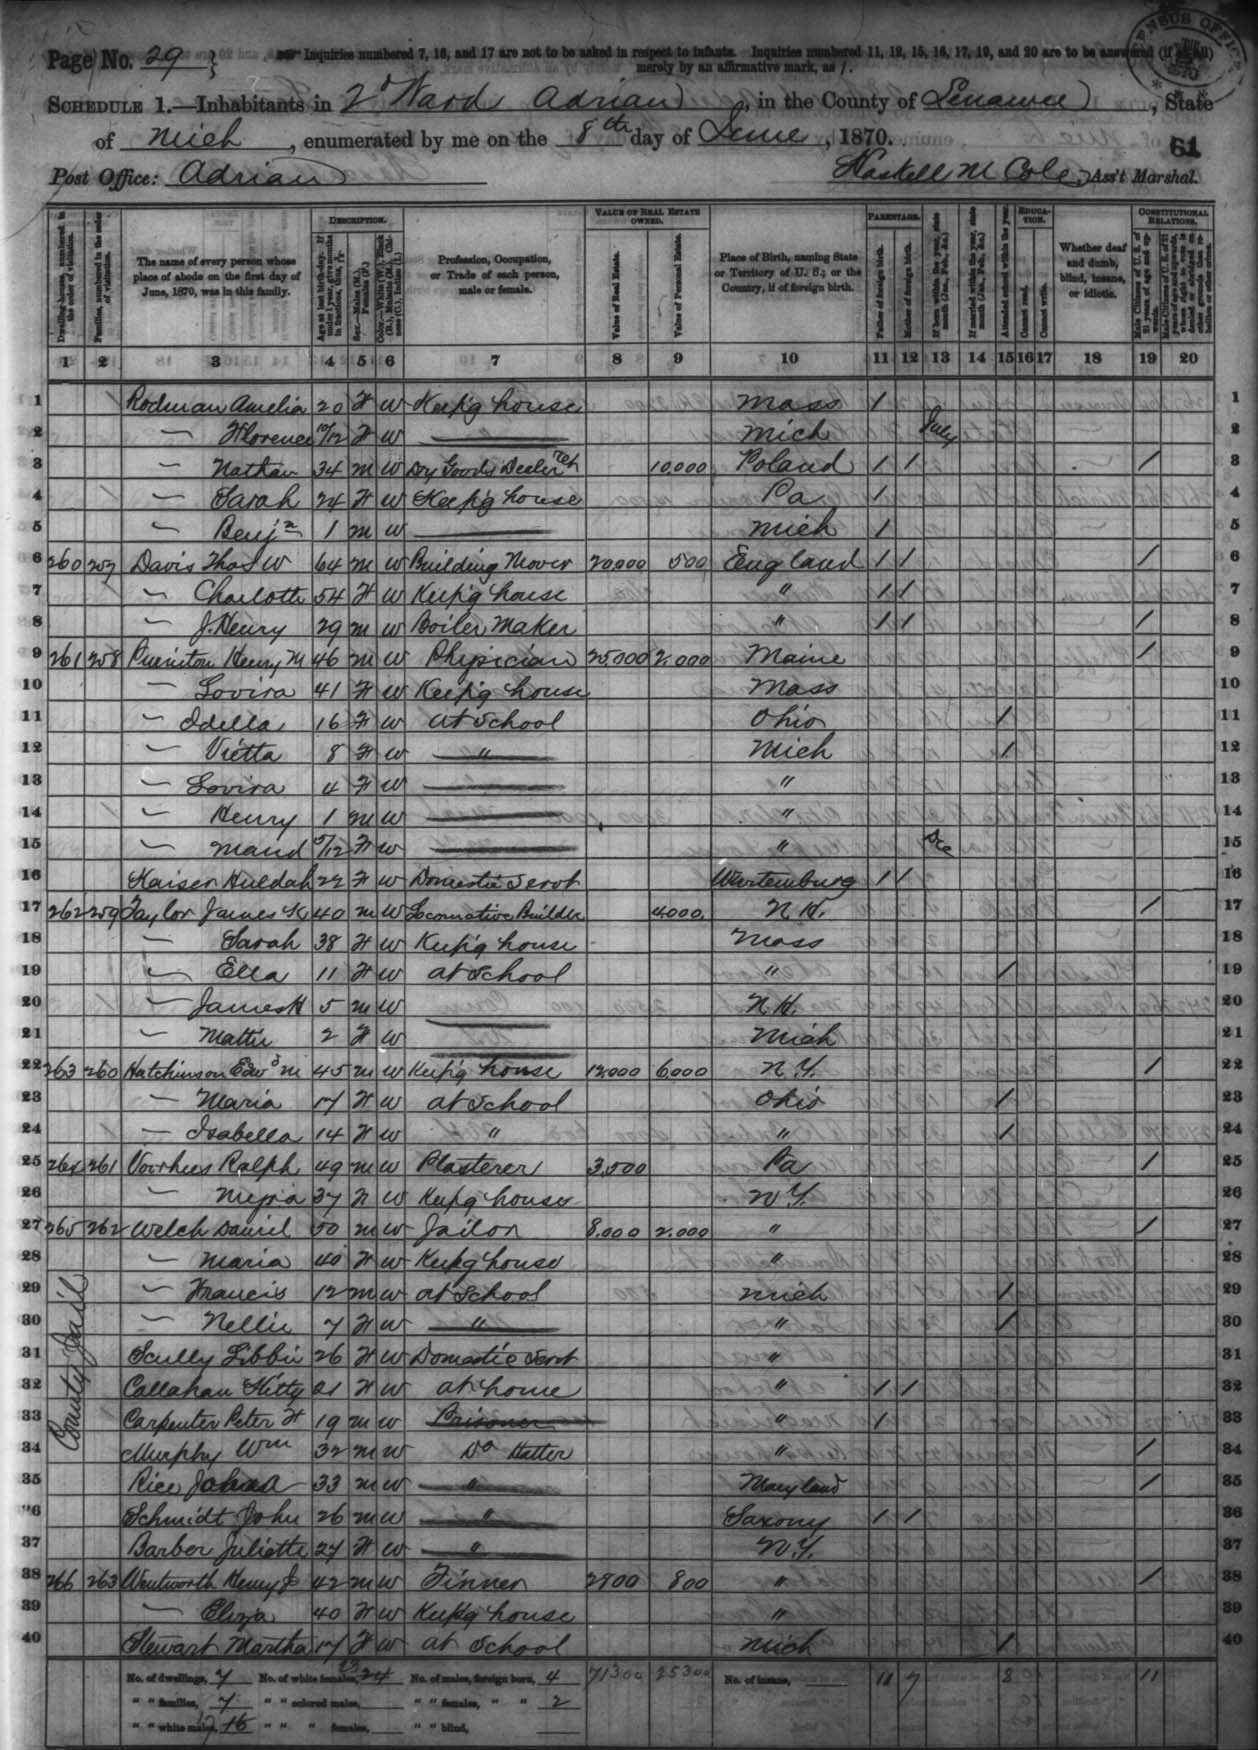 Page No. 29
Inquiries numbered 7, 16, and 17 are not to be asked in respect to infants. Inquiries numbered 11, 12, 15, 16, 17, 19, and 20 are to be answered (if at all)
merely by an affirmative mark, as /.
CENSUS OFFICE 1870
SCHEDULE 1.—Inhabitants in 2d Ward Adrian, in the County of Lenawee, State
of Mich, enumerated by me on the 8th day of June, 1870.
61
Post Office: Adrian
Haskell M Cole, Ass't Marshal.
DESCRIPTION. VALUE OF REAL ESTATE OWNED. PARENTAGE. EDUCATION. CONSTITUTIONAL RELATIONS.
Dwelling-houses, numbered in the order of visitation.
Families, numbered in the order of visitation.
The name of every person whose place of abode on the first day of June, 1870, was in this family.
Age at last birth-day. If under 1 year, give months in fractions, thus, 3/12
Sex.—Males (M.), Females (F.)
Color.—White (W.), Black (B.), Mulatto (M.), Chinese (C.), Indian (I.)
Profession, Occupation, or Trade of each person, male or female.
Value of Real Estate.
Value of Personal Estate.
Place of Birth, naming State or Territory of U. S.; or the Country, if of foreign birth.
Father of foreign birth.
Mother of foreign birth.
If born within the year, state month (Jan., Feb., &c.)
If married within the year, state month (Jan., Feb., &c.)
Attended school within the year.
Cannot read.
Cannot write.
Whether deaf and dumb, blind, insane, or idiotic.
Male Citizens of U. S. of 21 years of age and upwards.
1 2 3 4 5 6 7 8 9 10 11 12 13 14 15 16 17 18 19 20
1 Rodman Amelia 20 F W Keep'g house Mass / 1
2 — Florence 10/12 F W " Mich July 2
3 — Nathan 34 M W Dry Goods Dealer ret 10,000 Poland / / / 3
4 — Sarah 24 F W Keep'g house Pa / 4
5 — Benjn 1 M W Mich / 5
6 260 257 Davis Thos W 64 M W Building Mover 20,000 500 England / / / 6
7 — Charlotte 54 F W Keep'g house " / / 7
8 — J. Henry 29 M W Boiler Maker " / / / 8
9 261 258 Henry M 46 M W Physician 25,000 2,000 Maine / 9
10 — Lovira 41 F W Keep'g house Mass 10
11 — Idella 16 F W at School Ohio / 11
12 — Vietta 8 F W " Mich / 12
13 — Lovira 4 F W " 13
14 — Henry 1 M W " 14
15 — Maud 5/12 F W " Dec 15
16 Kaiser Huldah 22 F W Domestic Servt Wurtemburg / / 16
17 262 259 Taylor James K 40 M W Locomotive Builder 4,000 N.H. / 17
18 — Sarah 38 F W Keep'g house Mass 18
19 — Ella 11 F W at School " / 19
20 — James H 5 M W N.H. 20
21 — Mattie 2 F W Mich 21
22 263 260 Hatchinson Edwd M 45 M W Keep'g house 12,000 6,000 N.Y. / 22
23 — Maria 17 F W at School Ohio / 23
24 — Isabella 14 F W " " / 24
25 264 261 Voorhees Ralph 49 M W Plasterer 3,500 Pa / 25
26 — 37 F W Keep'g house N.Y. 26
27 265 262 Welch Daniel 50 M W Jailor 8,000 2,000 " / 27
28 — Maria 40 F W Keep'g house " 28
29 — Francis 12 M W at School Mich / 29
30 — Nellie 7 F W " " / 30
31 Scully Libbie 26 F W Domestic Servt " 31
32 Callahan Kitty 21 F W at home " / / 32
County Jail
33 Carpenter Peter H 19 M W Prisoner " / 33
34 Murphy Wm 32 M W Do Hatter " / 34
35 Rice 33 M W " Maryland / 35
36 Schmidt John 26 M W " Saxony / / 36
37 Barber Juliette 27 F W " N.Y. 37
38 266 263 Wentworth Henry J 42 M W Tinner 2800 800 " / 38
39 — Eliza 40 F W Keep'g house " 39
40 Stewart Martha 17 F W at School Mich / 40
No. of dwellings, 7 No. of white females, 23 24 No. of males, foreign born, 4 71300 25300 No. of insane, 11 7 8 11
" " families, 7 " " colored males, " " females, " " 2
" " white males, 17 16 " " " females, " " blind,